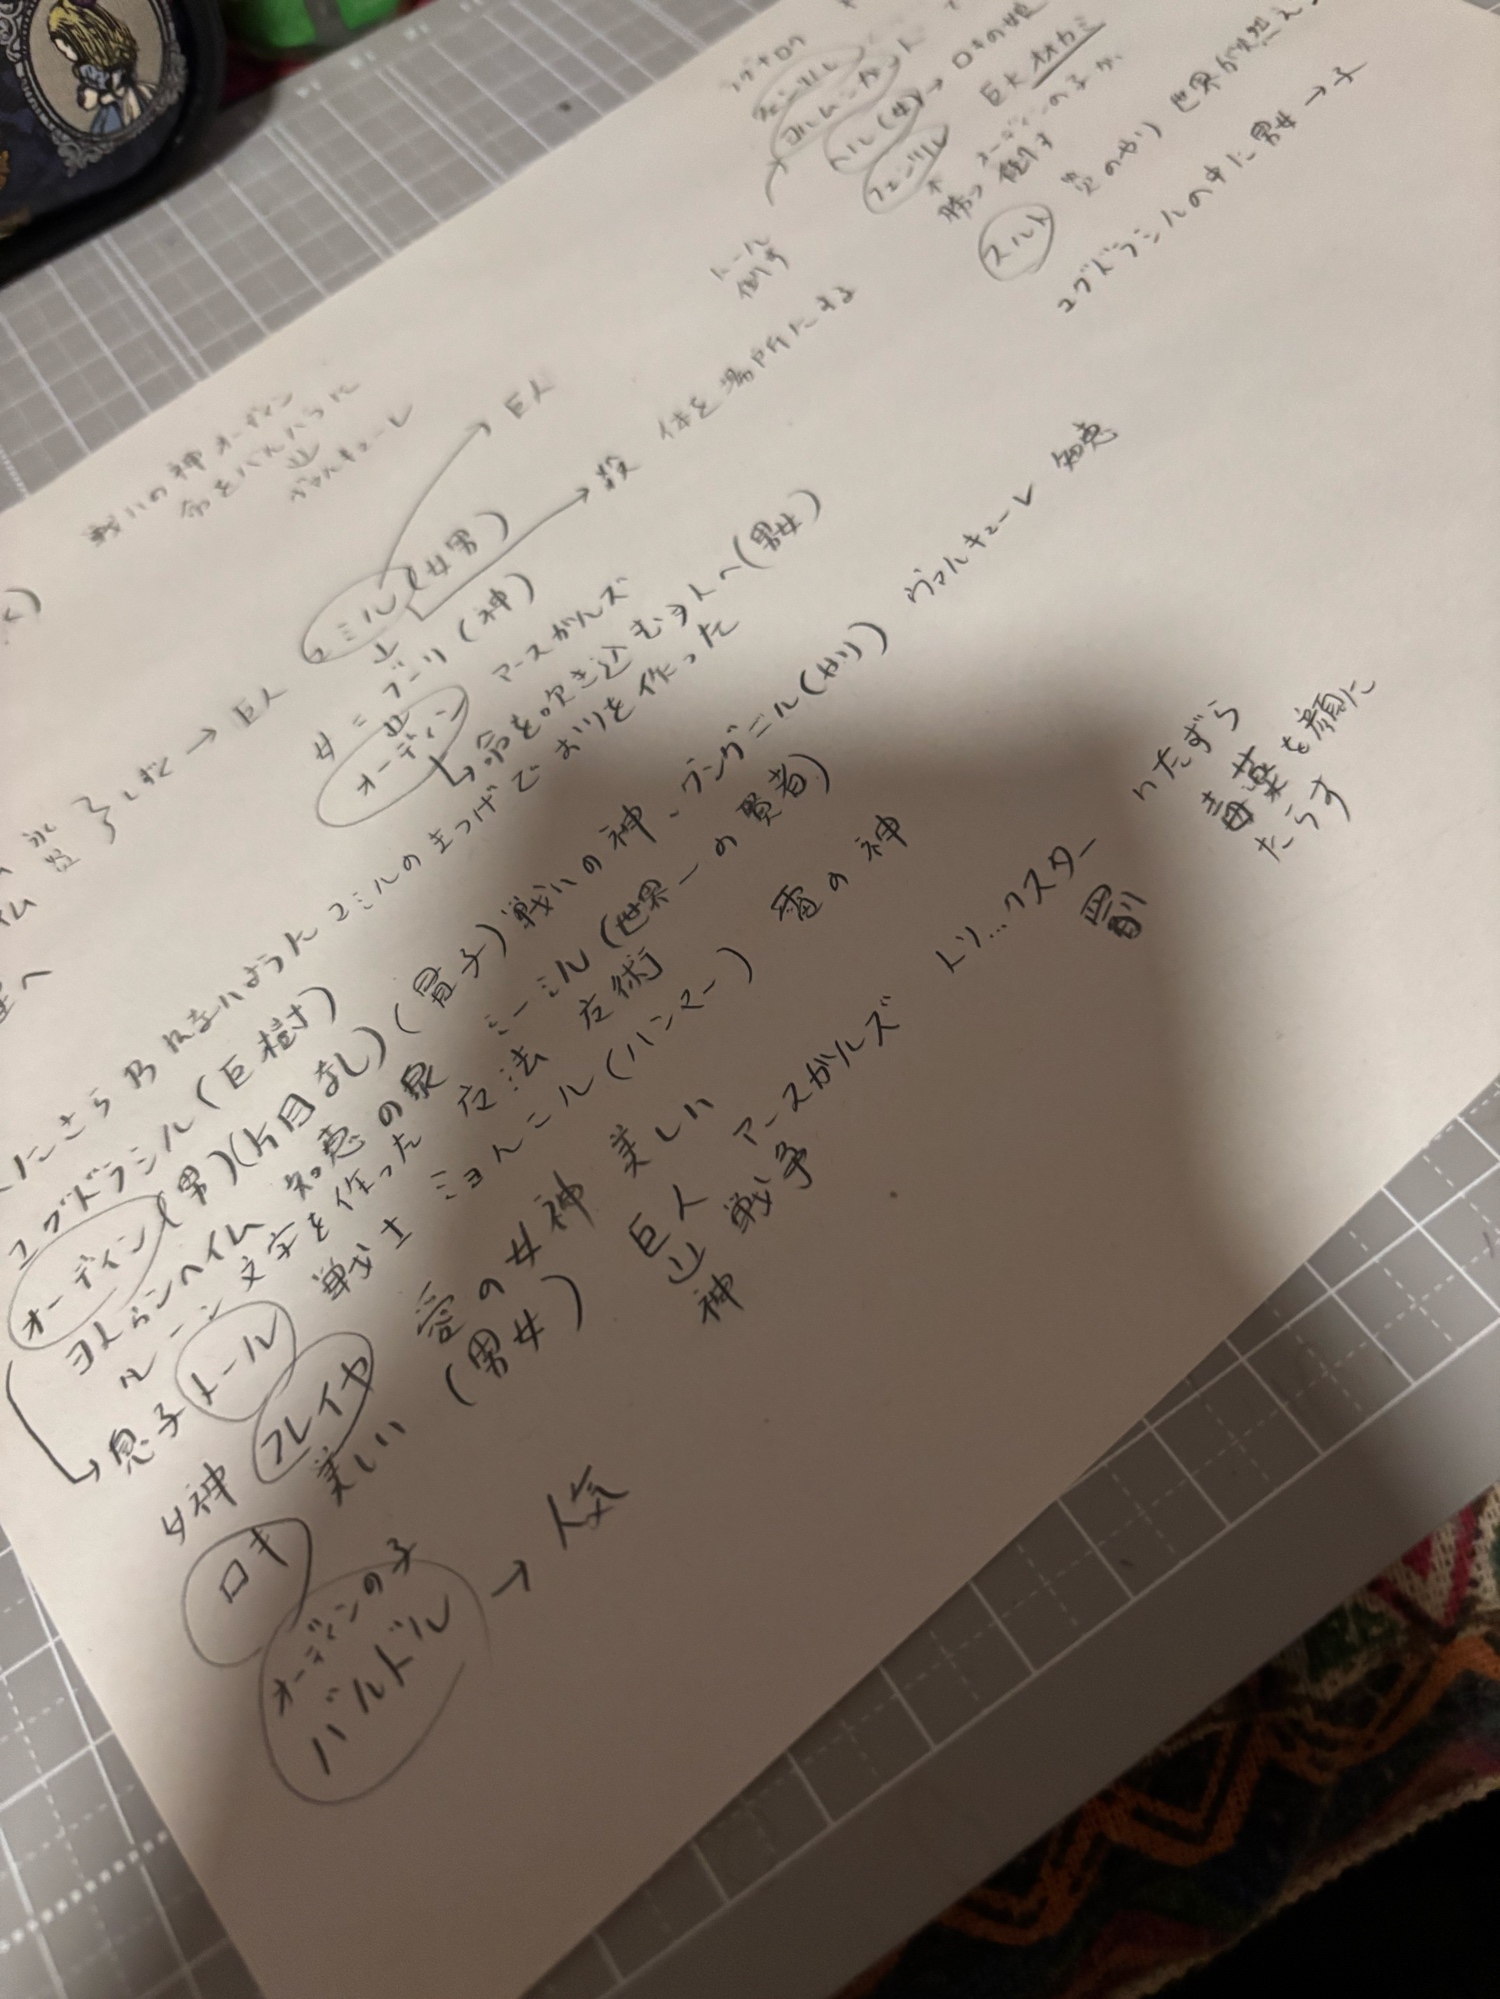 ラグナロク
ヨルムンガンド
ヘル(女)→ロキの娘
フェンリル 巨大オオカミ
勝つ 倒す オーディンの子が
スルト 炎のやり 世界が燃え
ユグドラシルの中に男女→子
トール
倒す
戦いの神オーディン
命をバルハラに
ヴァルキューレ
巨人
ユミル(女男) 殺 体を場所にする
ブーリ(神)
オーディン アースガルズ
命を吹き込む ヨトへ(男女)
→巨人
ユミルのまつげでおりを作った
ユグドラシル(巨樹)
オーディン(男)(片目なし)(長子)戦いの神、グングニル(やり) ヴァルキューレ 知恵
ヨトゥンヘイム 知恵の泉 ミーミル(世界一の賢者)
ルーン文字を作った 占法 占術
息子 トール 戦士 ミョルニル(ハンマー) 雷の神
女神 フレイヤ 愛の女神 美しい
ロキ 美しい (男女) 巨人 アースガルズ トリ…クスター いたずら
神 戦争 罰 毒薬を顔に
たらす
オーディンの子
バルドル → 人気